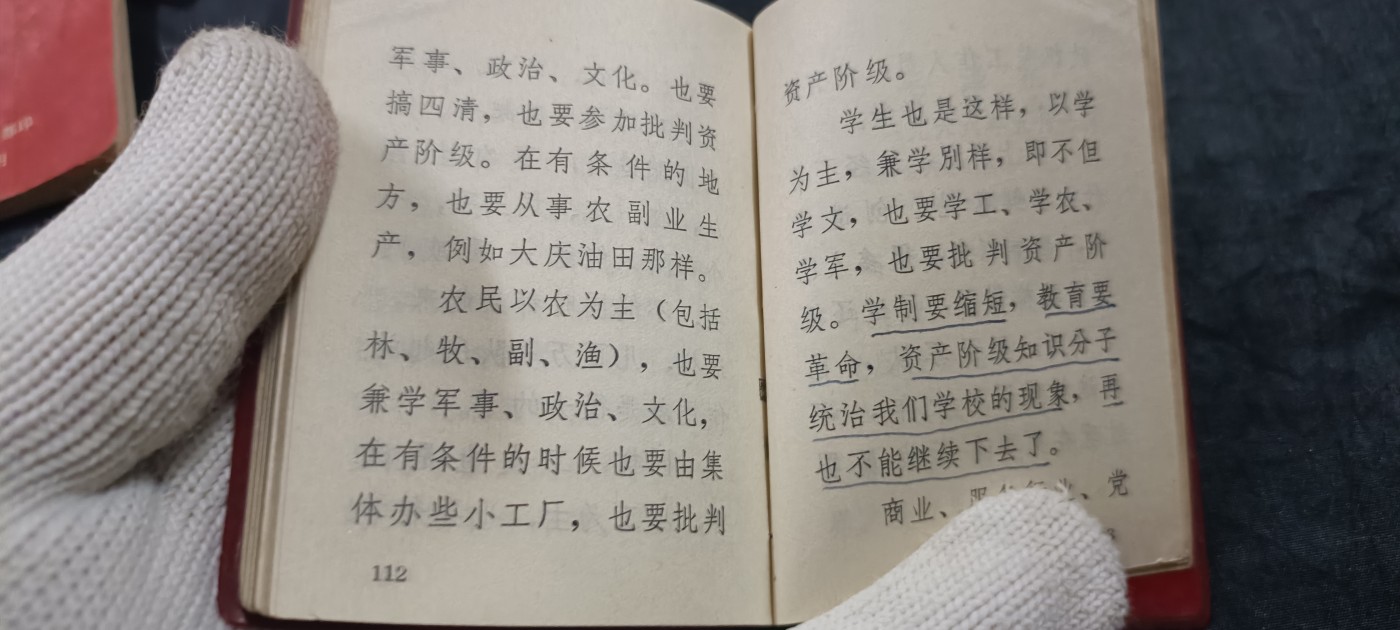 军事、政治、文化。也要
搞四清，也要参加批判资
产阶级。在有条件的地
方，也要从事农副业生
产，例如大庆油田那样。
农民以农为主（包括
林、牧、副、渔），也要
兼学军事、政治、文化，
在有条件的时候也要由集
体办些小工厂，也要批判
112
资产阶级。
学生也是这样，以学
为主，兼学别样，即不但
学文，也要学工、学农、
学军，也要批判资产阶
级。学制要缩短，教育要
革命，资产阶级知识分子
统治我们学校的现象，再
也不能继续下去了。
商业、服 业、党